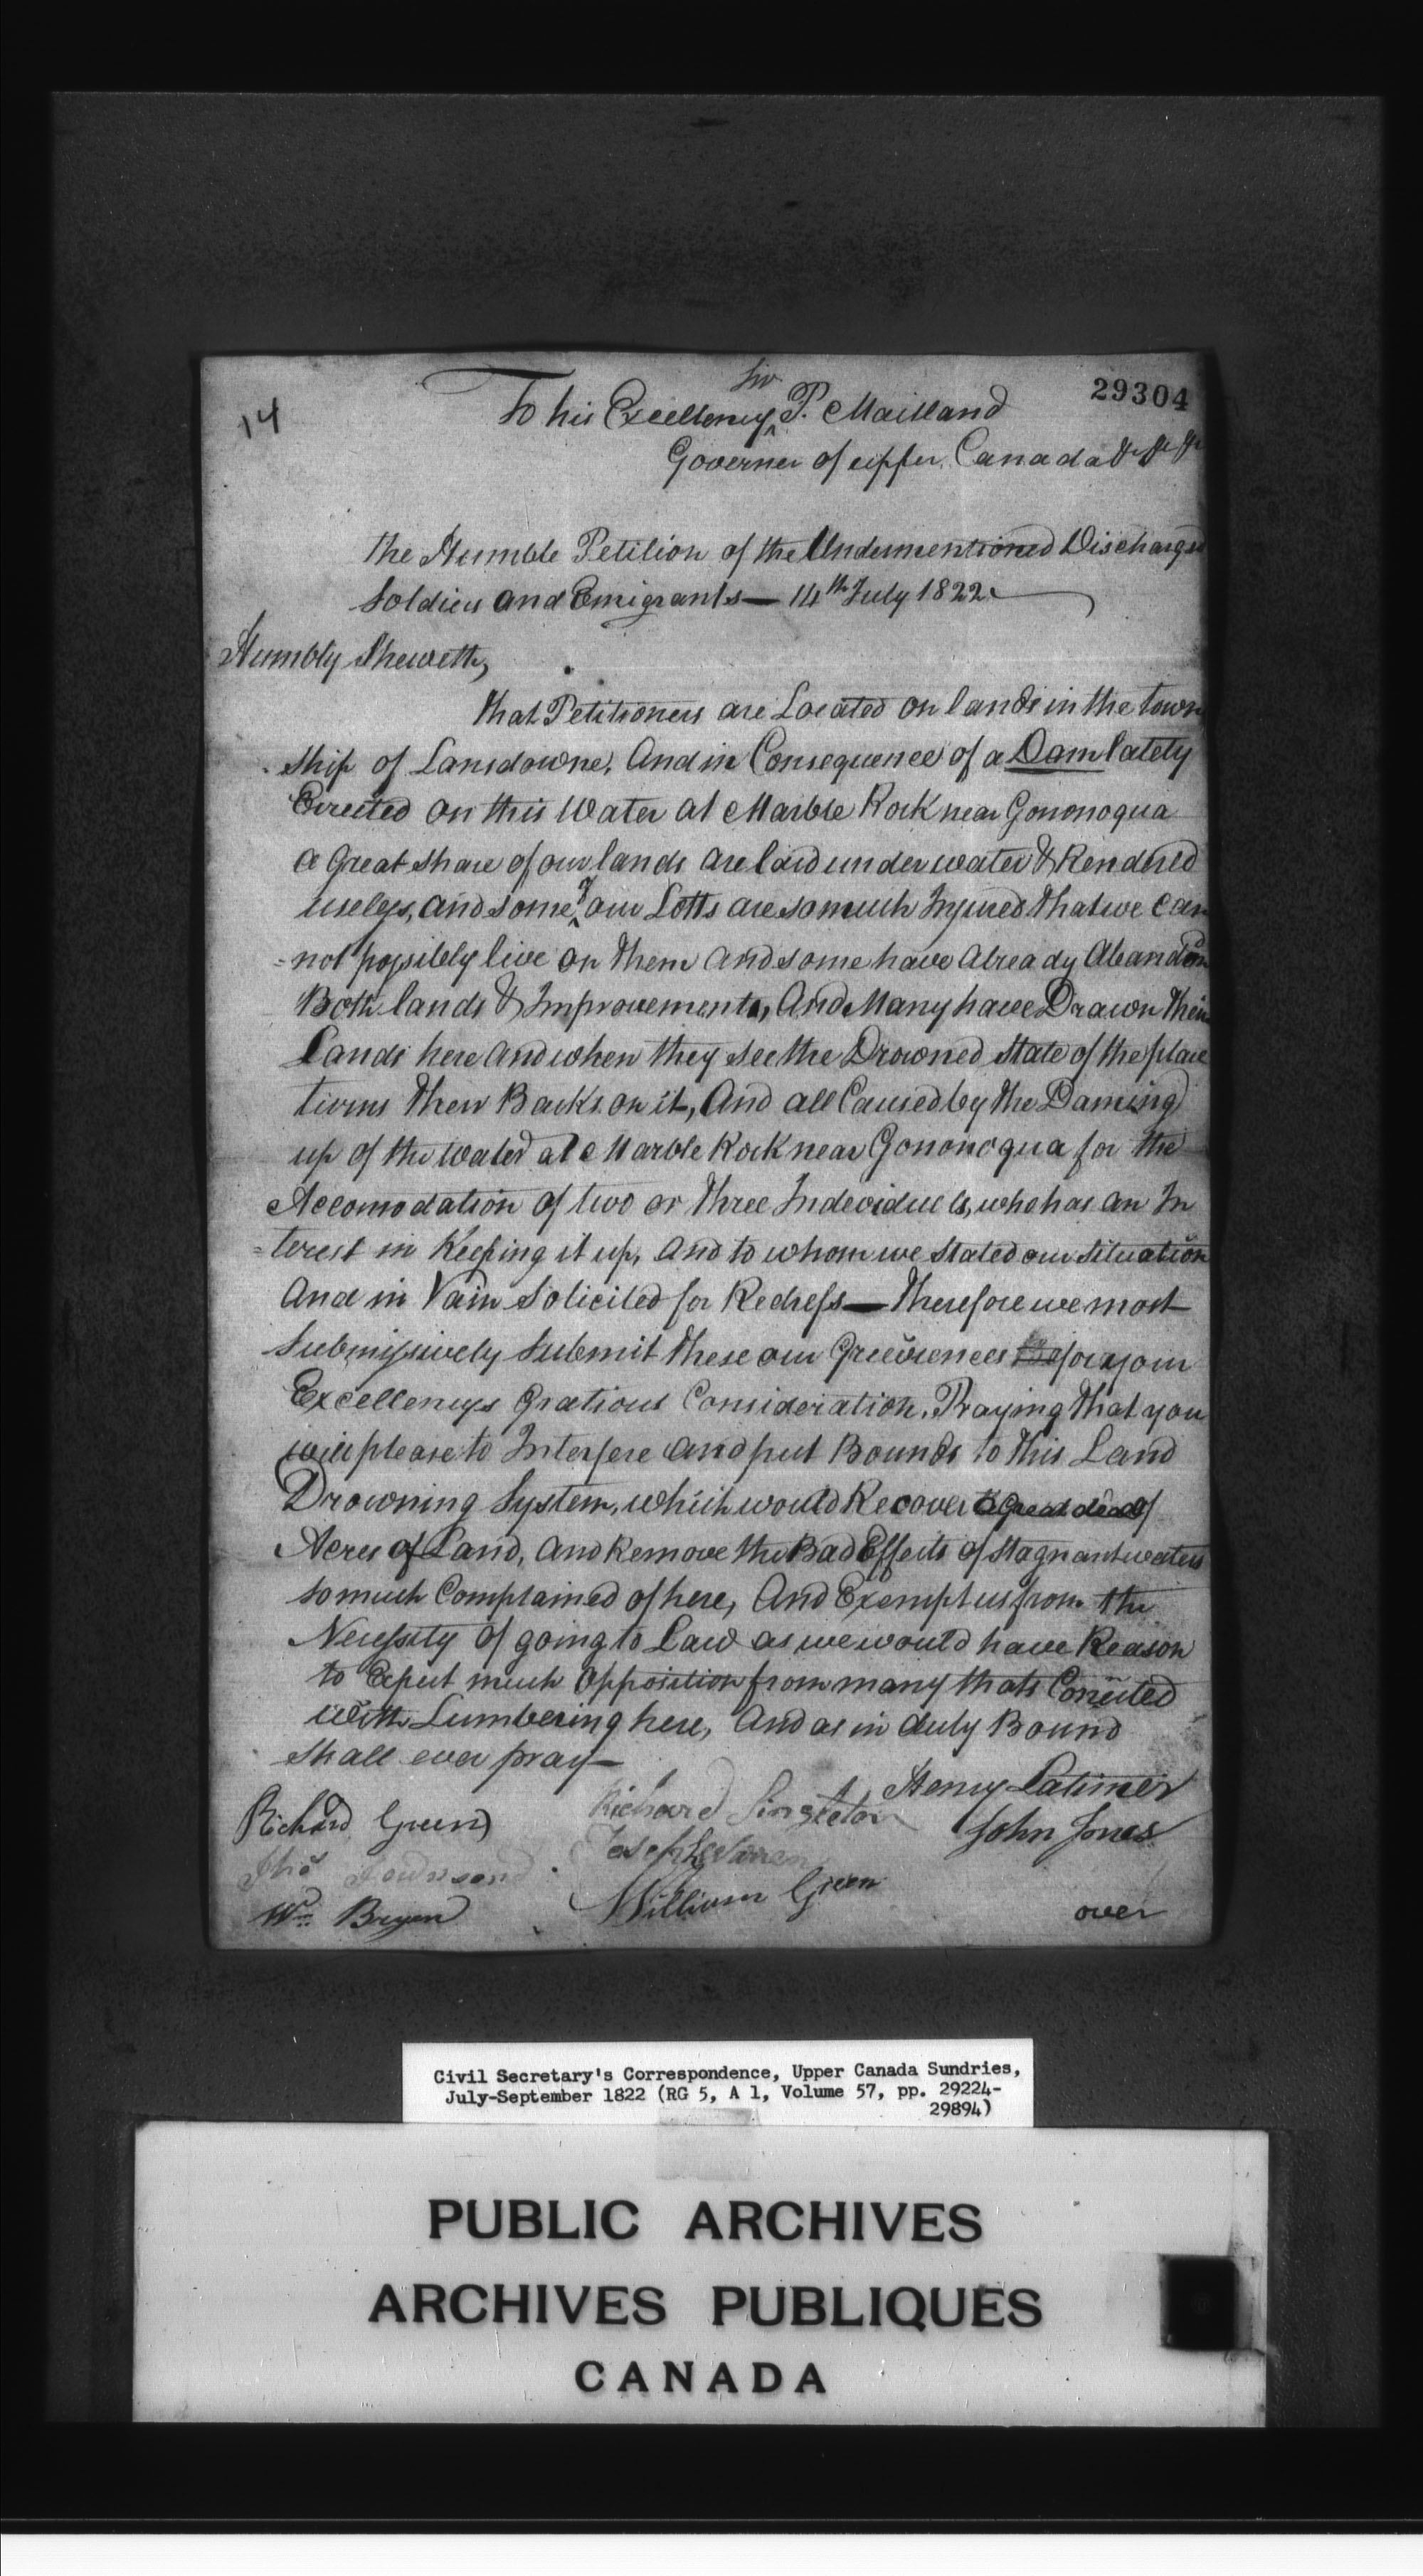 29304
14
Sir
To his Excellency ^ P. Maitland
Governer of upper Canada &c &c &c
the Humble Petition of the Undermentioned Discharged
Soldiers and Emigrants — 14th July 1822
Humbly Sheweth,
that Petitioners are Located on lands in the town
ship of Lansdowne, And in Consequence of a Dam lately
Errected on this Water at Marble Rock near Gononoqua
a Great share of our lands are laid under water & Rendered
useless, and some ^of our Lotts are so much Injured that we can
=not possibly live on them and some have already Abandon
Both lands & Improvements, And Many have Drawn their
Lands here and when they see the Drowned state of the place
turns their Backs on it, And all Caused by the Daming
up of the water at Marble Rock near Gononoqua for the
Accomodation of two or three Individuels, who has an In
=terest in Keeping it up, and to whom we stated our situation
And in Vain Solicited for Redress — Therefore we most
Submissively Submit these our Grievences for your
Excellencys Gratious Consideration, Praying that you
will please to Interfere and put Bounds to this Land
Drowning System, which would Recover a Great deal of
Acres of Land, and Remove the Bad Effects of stagnant waters
so much Complained of here, And Exempt us from the
Necessity of going to Law as we would have Reason
to Expect much Opposition from many thats Conected
with Lumbering here, And as in duty Bound
shall ever pray —
Henry Latimer
Richard Green
Richard Singleton
John Jones
Jno Townsend
Joseph Warren
Wm Bryen
William Green
over
Civil Secretary's Correspondence, Upper Canada Sundries,
July-September 1822 (RG 5, A 1, Volume 57, pp. 29224-
29894)
PUBLIC ARCHIVES
ARCHIVES PUBLIQUES
CANADA